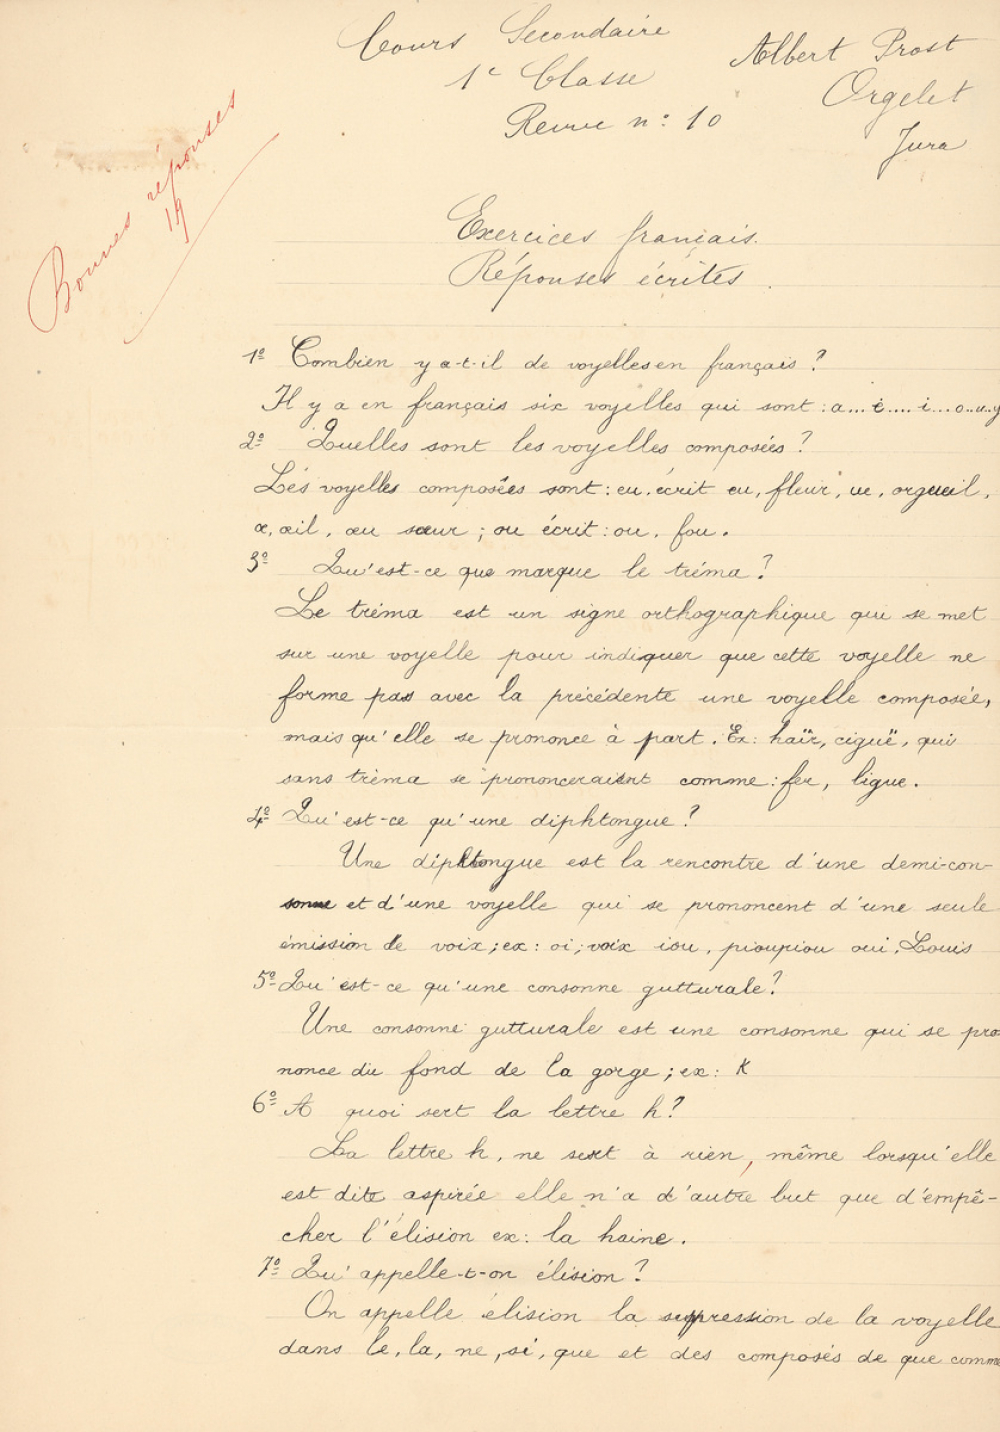 Cours Secondaire
1e Classe
Revue n: 10
Albert Prost
Orgelet
Jura
Bonnes réponses
19
Exercices français.
Réponses écrites.
1º Combien y a-t-il de voyelles en français ?
Il y a en français six voyelles qui sont : a... e.... i... o..u..y
2º Quelles sont les voyelles composées ?
Lés voyelles composées sont : eu, écrit eu, fleur, ue, orgueil,
œ, œil, œu sœur ; ou écrit : ou, fou.
3º Qu'est-ce que marque le tréma ?
Le tréma est un signe orthographique qui se met
sur une voyelle pour indiquer que cette voyelle ne
forme pas avec la précédente une voyelle composée,
mais qu'elle se prononce à part. Ex : haïr, ciguë, qui
sans tréma se prononceraient comme : fer, ligue.
4º Qu'est-ce qu'une diphtongue ?
Une diphtongue est la rencontre d'une demi-con-
sonne et d'une voyelle qui se prononcent d'une seule
émission de voix ; ex : oi ; voix iou, pioupiou oui, Louis
5º Qu'est-ce qu'une consonne gutturale ?
Une consonne gutturale est une consonne qui se pro
nonce du fond de la gorge ; ex : K
6º A quoi sert la lettre h ?
La lettre h, ne sert à rien, même lorsqu'elle
est dite aspirée elle n'a d'autre but que d'empê-
cher l'élision ex : la haine.
7º Qu'appelle-t-on élision ?
On appelle élision la suppression de la voyelle
dans le, la, ne, si, que et des composés de que comme